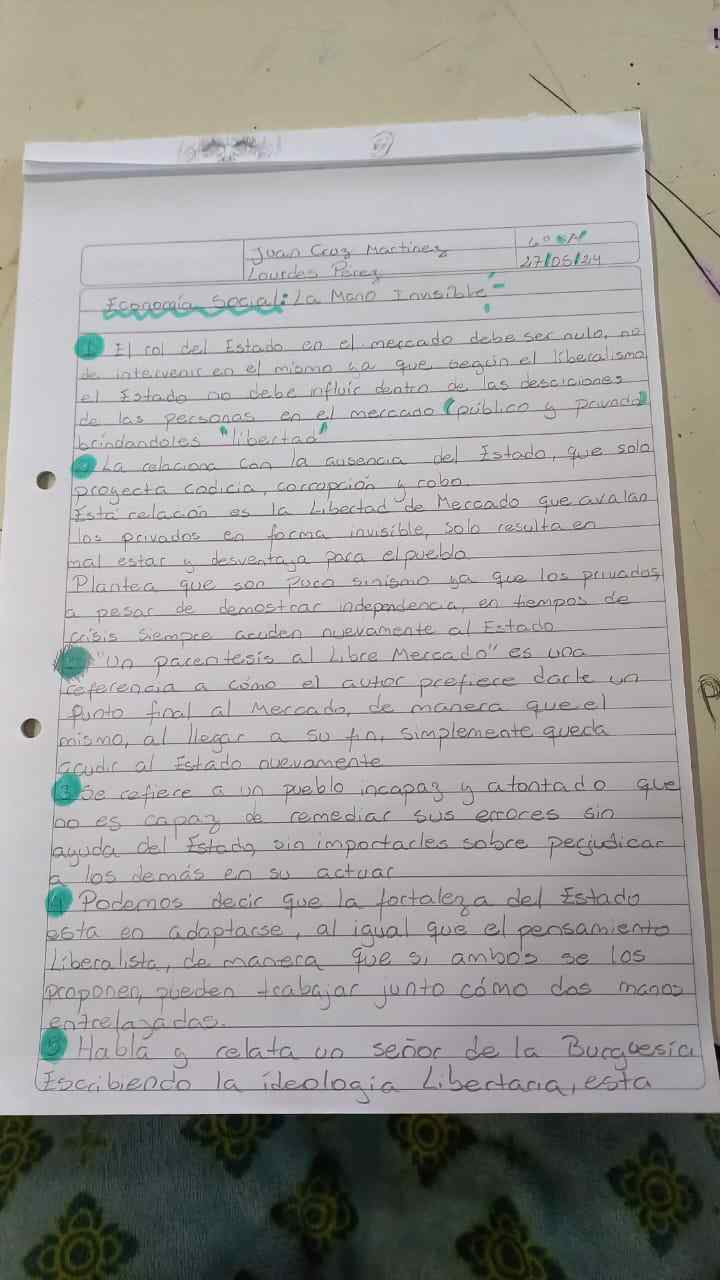 Juan Cruz Martinez
Lourdes Perez
6º
27/05/24
Economía Social: La Mano Invisible
1 El rol del Estado en el mercado debe ser nulo, no
de intervenir en el mismo ya que según el liberalismo
el Estado no debe influir dentro de las desciciones
de las personas en el mercado (público y privado)
brindandoles "libertad"
2 La relaciona con la ausencia del Estado, que solo
proyecta codicia, corrupción y robo.
Esta relación es la Libertad de Mercado que avalan
los privados en forma invisible, solo resulta en
mal estar y desventaja para el pueblo
Plantea que son puro sinismo ya que los privados,
a pesar de demostrar independencia, en tiempos de
crisis siempre acuden nuevamente al Estado
"Un parentesis al Libre Mercado" es una
referencia a cómo el autor prefiere darle un
punto final al Mercado, de manera que el
mismo, al llegar a su fin, simplemente queda
acudir al Estado nuevamente
3 Se refiere a un pueblo incapaz y atontado que
no es capaz de remediar sus errores sin
ayuda del Estado, sin importarles sobre perjudicar
a los demás en su actuar
4 Podemos decir que la fortaleza del Estado
esta en adaptarse, al igual que el pensamiento
Liberalista, de manera que si ambos se los
proponen, pueden trabajar junto cómo dos manos
entrelazadas.
5 Habla y relata un señor de la Burguesía
Escribiendo la ideología Libertaria, esta